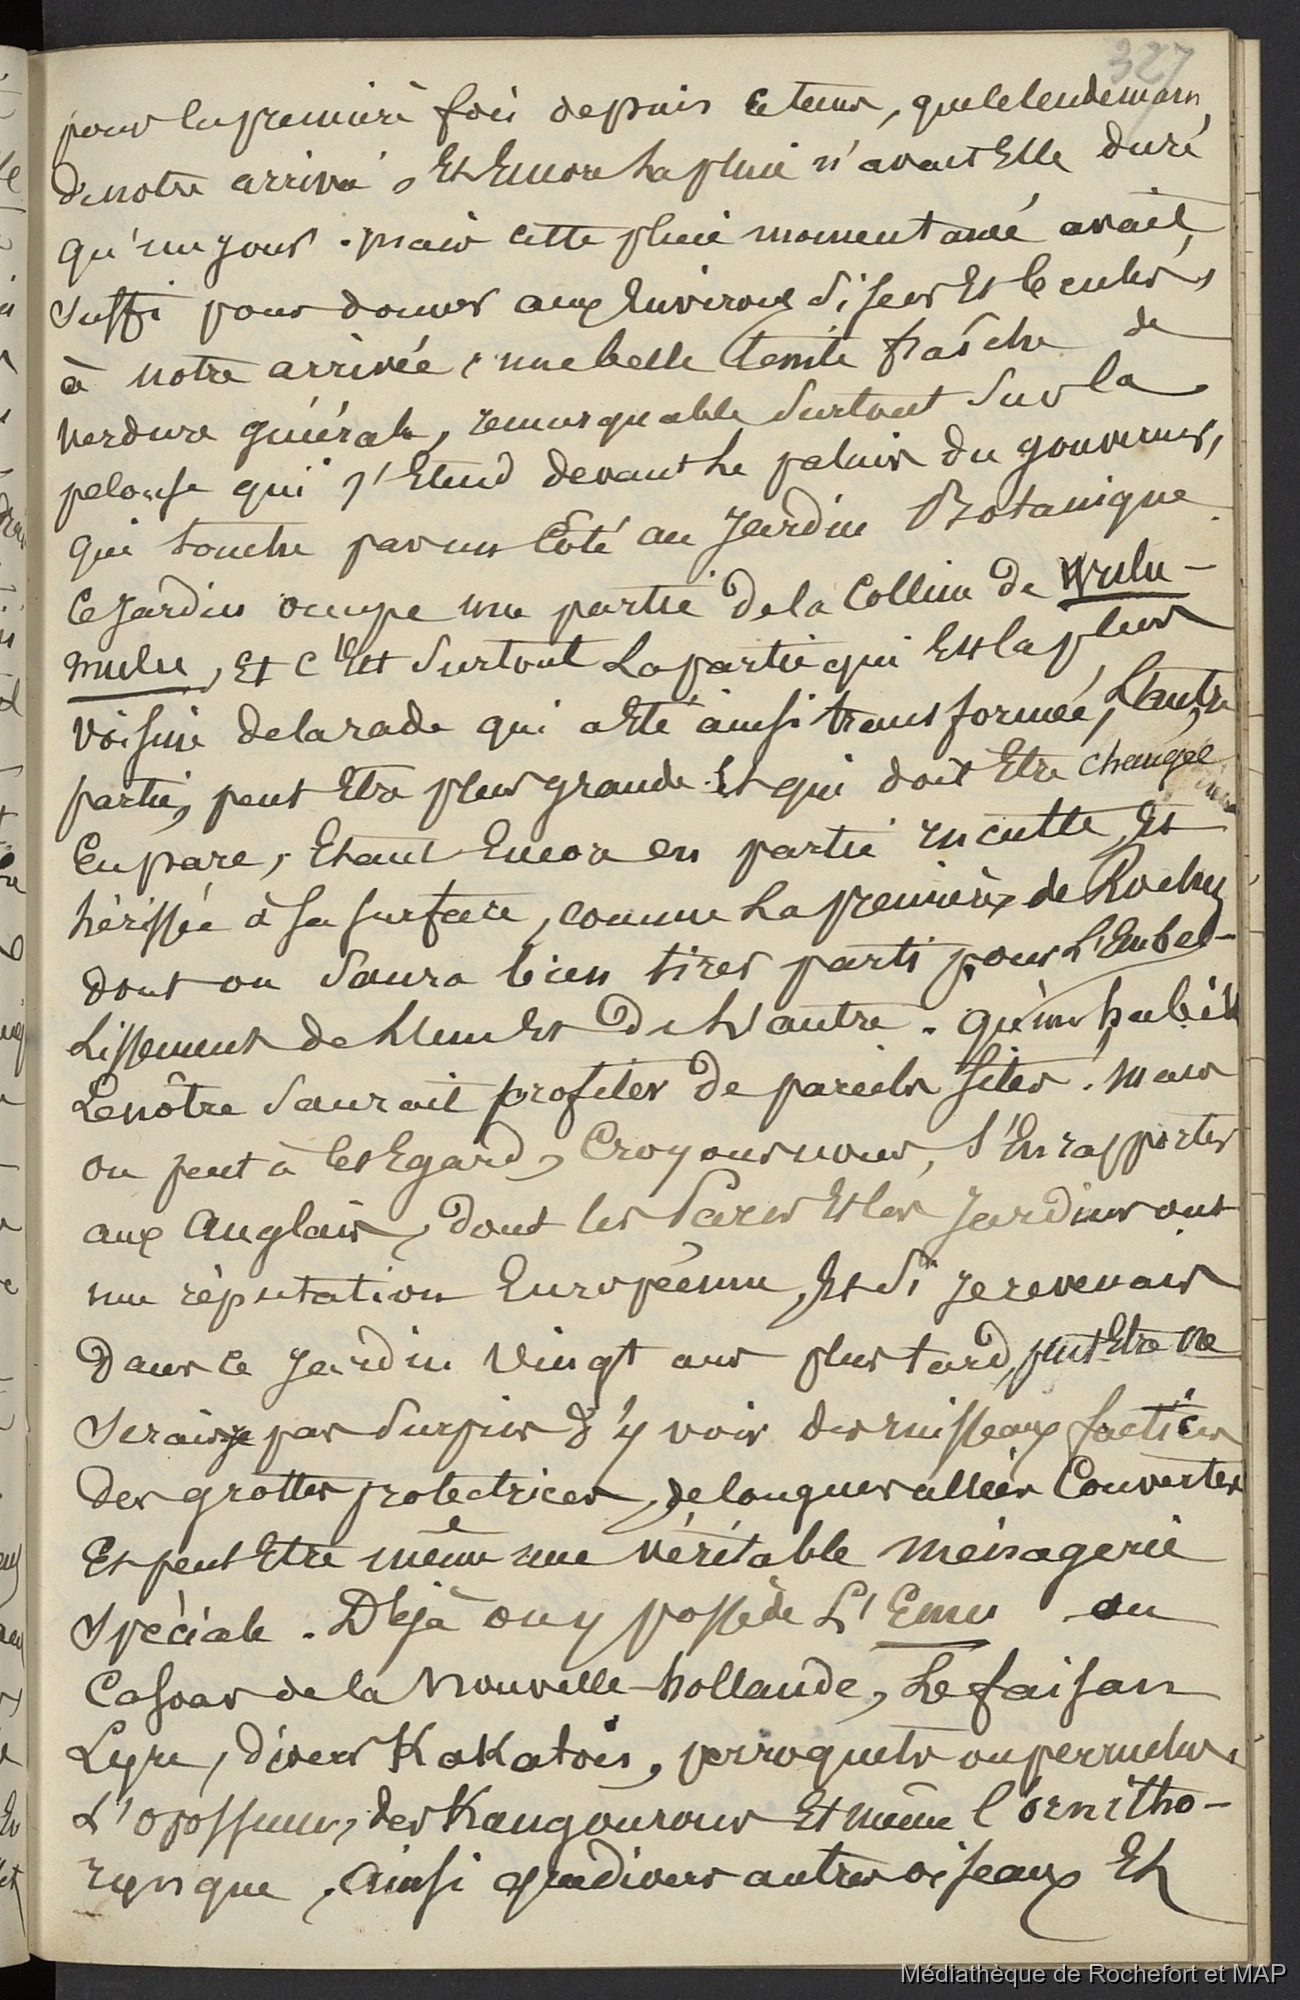 327
pour la premiere fois depuis ce tems, que le lendemain
de notre arrivé, Et Encore La pluie n'avait Elle duré
qu'un jour. mais cette pluie momentaneé avait
Suffi pour donner aux Environs si secs Et brulés,
à notre arrivée, une belle teinte fraîche de
verdure générale, remarquable Surtout Sur la
pelouse qui s'Etend devant Le palais du gouverneur,
qui touche par un Coté au Jardin Botanique.
Ce Jardin occupe une partie de la Colline de Wulu-
mulu, Et c'Est Surtout La partie qui Est la plus
voisine de la rade qui a Eté ainsi transformée, L'autre
partie, peut Etre plus grande Et qui doit Etre changée
En parc, Etant Encore en partie inculte Et
hérissée à Sa Surface, comme La premiere de Roches
dont on Saura bien tirer parti pour L'Embel-
Lissement de L'un Et De L'autre. qu'un habile
Lenôtre Saurait profiter de pareils Sites. mais
on peut à cet Egard, Croyons nous, S'En rapporter
aux Anglais, dont les Parcs Et les Jardins ont
une réputation Européenne, Et Si Je revenais
Dans ce Jardin Vingt ans plus tard, peut Etre ne
Serais je pas Surpris d'y voir des ruisseaux factices
Des grottes protectrices, de longues allées Couvertes
Et peut Etre même une véritable ménagerie
Spéciale. Déjà on y possède L'Emu ou
Casoar de la Nouvelle-hollande, Le faisan
Lyre, divers Kakatois, perroquets ou perruches,
L'opossum, des Kangourous Et même l'ornitho-
rynque, Ainsi que divers autres oiseaux Et
Médiathèque de Rochefort et MAP